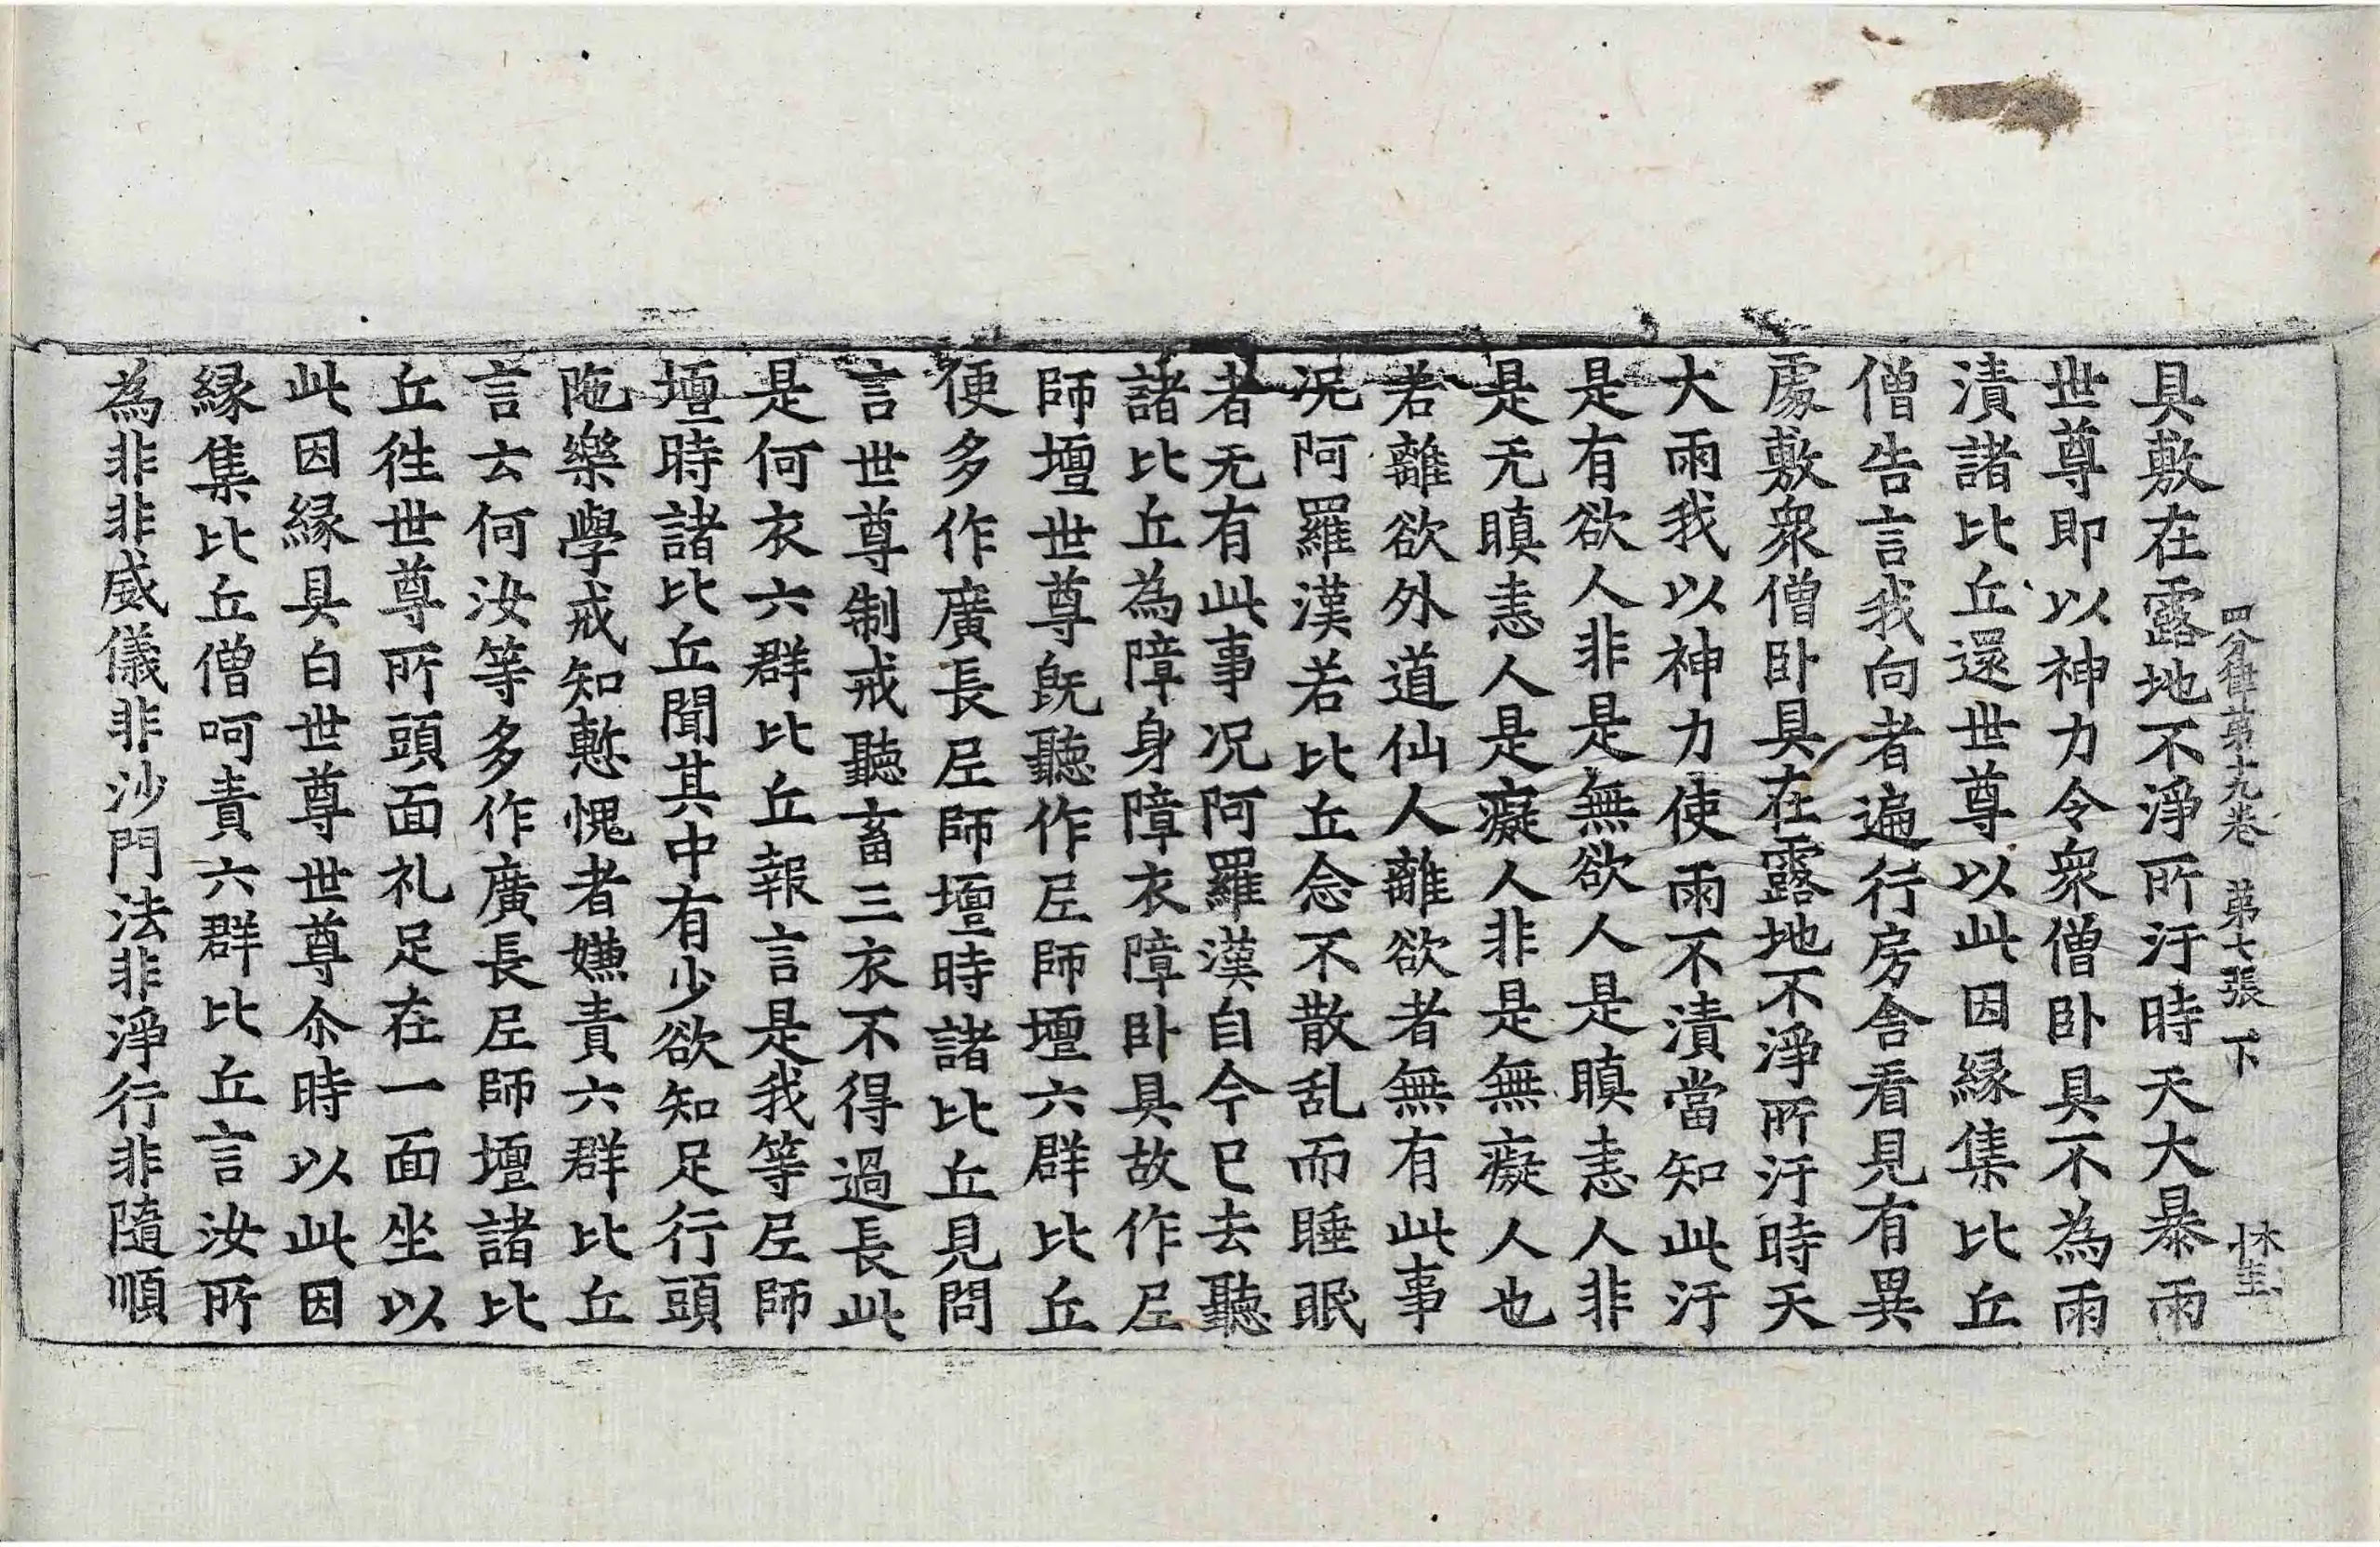 四分律第十九卷 第七張 下
具敷在露地不淨所汙時天大暴雨
世尊即以神力令衆僧卧具不為雨
漬諸比丘還世尊以此因緣集比丘
僧告言我向者遍行房舍看見有異
處敷衆僧卧具在露地不淨所汙時天
大雨我以神力使雨不漬當知此汙
是有欲人非是無欲人是瞋恚人非
是无瞋恚人是癡人非是無癡人也
若離欲外道仙人離欲者無有此事
况阿羅漢若比丘念不散乱而睡眠
者无有此事况阿羅漢自今已去聽
諸比丘為障身障衣障卧具故作𡰱
師壇世尊旣聽作𡰱師壇六群比丘
便多作廣長𡰱師壇時諸比丘見問
言世尊制戒聽畜三衣不得過長此
是何衣六群比丘報言是我等𡰱師
壇時諸比丘聞其中有少欲知足行頭
陁樂學戒知慙愧者嫌責六群比丘
言云何汝等多作廣長𡰱師壇諸比
丘徃世尊所頭面礼足在一面坐以
此因緣具白世尊世尊尒時以此因
緣集比丘僧呵責六群比丘言汝所
為非非威儀非沙門法非淨行非隨順